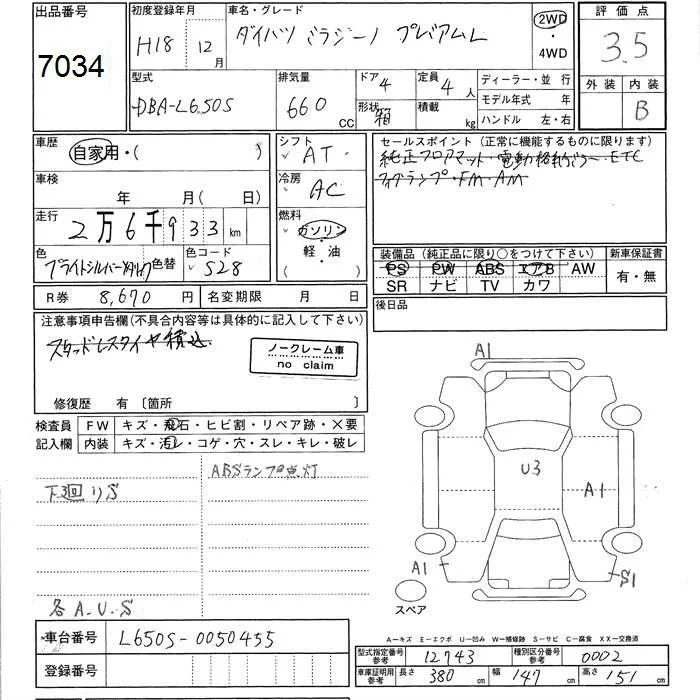 出品番号
7034
初度登録年月
H18 12月
車名・グレード
ダイハツ ミラジーノ プレミアムL
2WD
・
4WD
評価点
3.5
外装 内装
B
型式
DBA-L650S
排気量
660 CC
ドア 4
形状 箱
定員 4人
積載 kg
ディーラー・並行
モデル年式 年
ハンドル 左・右
車歴
自家用・( )
車検
年 月( 日)
走行
2万6千933km
色
ブライトシルバーメタリック
色替
色コード
S28
シフト
AT
冷房
AC
燃料
ガソリン
・
軽・油
( )
セールスポイント(正常に機能するものに限ります)
純正フロアマット・電動格納ミラー・ETC
フォグランプ・FM・AM
装備品(純正品に限り○をつけて下さい)
PS PW ABS エアB AW
SR ナビ TV カワ
新車保証書
有・無
後日品
R券 8,670円
名変期限 月 日
注意事項申告欄(不具合内容等は具体的に記入して下さい)
スタッドレスタイヤ積込
ノークレーム車
no claim
修復歴 有 〔箇所 〕
検査員
記入欄
FW キズ・飛石・ヒビ割・リペア跡・×要
内装 キズ・汚レ・コゲ・穴・スレ・キレ・破レ
ABSランプ点灯
下回りS
各A.U.S
A1
U3
A1
A1
S1
スペア
A－キズ E－エクボ U－凹み W－補修跡 S－サビ C－腐食 XX－交換済
車台番号 L650S-0050455
登録番号
型式指定番号
参考
12743
種別区分番号
参考
0002
車庫証明用
参考
長さ 380cm
幅 147cm
高さ 151cm